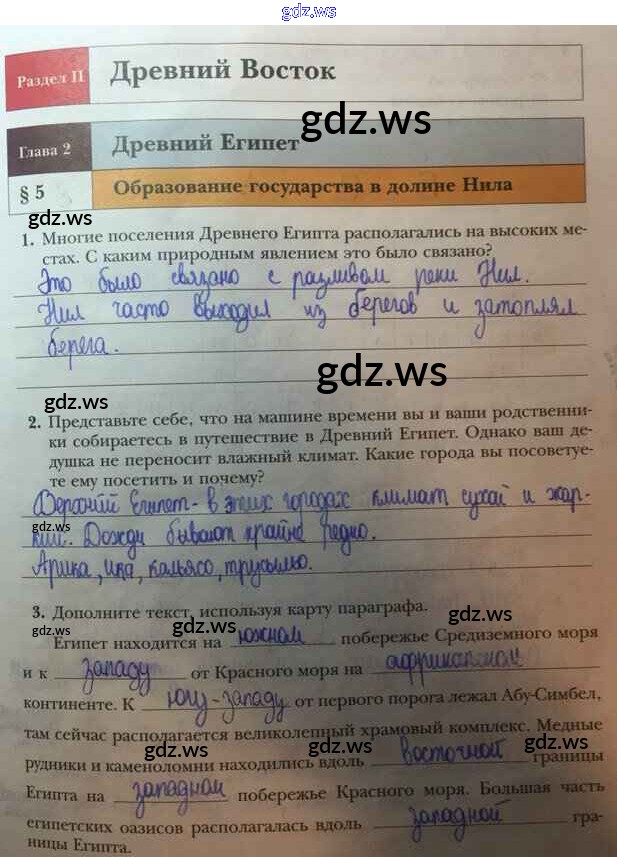 gdz.ws
Раздел II
Древний Восток
gdz.ws
Глава 2
Древний Египет
§ 5
Образование государства в долине Нила
gdz.ws
1. Многие поселения Древнего Египта располагались на высоких ме-
стах. С каким природным явлением это было связано?
Это было связано с разливом реки Нил.
Нил часто выходил из берегов и затоплял
берега.
gdz.ws
gdz.ws
2. Представьте себе, что на машине времени вы и ваши родственни-
ки собираетесь в путешествие в Древний Египет. Однако ваш де-
душка не переносит влажный климат. Какие города вы посоветуе-
те ему посетить и почему?
Верхний Египет - в этих городах климат сухой и жар-
gdz.ws
кий. Дожди бывают крайне редко.
Арика, ика, кальясо, трусильо.
gdz.ws
3. Дополните текст, используя карту параграфа.
gdz.ws gdz.ws
Египет находится на южном побережье Средиземного моря
и к западу от Красного моря на африканском
континенте. К югу-западу от первого порога лежал Абу-Симбел,
там сейчас располагается великолепный храмовый комплекс. Медные
gdz.ws gdz.ws gdz.ws
рудники и каменоломни находились вдоль восточной границы
Египта на западном побережье Красного моря. Большая часть
египетских оазисов располагалась вдоль западной гра-
ницы Египта.
gdz.ws